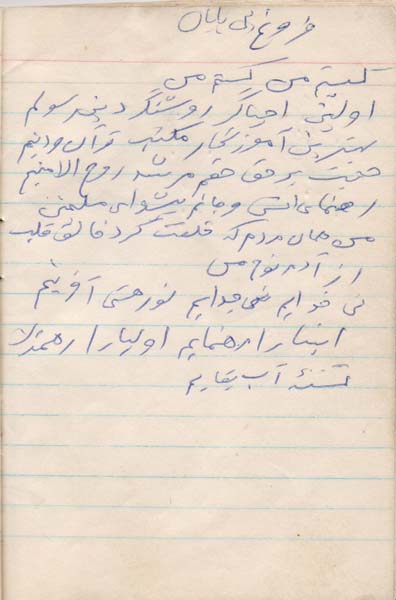 فروغ بی پایان
کیستم من کیستم من
اولین احیاگر روشنگر دین رسولم
بهترین آموزگار مکتب قرآن و دینم
حجت بر حق حقم مرشد روح الامینم
رهنمای انس و جانم پیشوای
من همان مردم که خلقت کرد خالق قلب
از آدم نوح من
نی خدایم نی جدایم نور هستی آفرینم
انبیا را رهنمایم اولیا را
تشنه آب بقایم